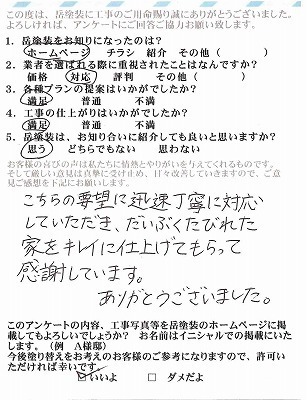 この度は、岳塗装に工事のご用命賜り誠にありがとうございました。
よろしければ、アンケートにご回答ご協力お願い致します。
1. 岳塗装をお知りになったのは？
ホームページ チラシ 紹介 その他（ ）
2. 業者を選ばれる際に重視されたことはなんですか？
価格 対応 評判 その他（ ）
3. 各種プランの提案はいかがでしたか？
満足 普通 不満
4. 工事の仕上がりはいかがでしたか？
満足 普通 不満
5. 岳塗装は、お知り合いに紹介しても良いと思いますか？
思う どちらでもない 思わない
お客様の喜びの声は私たちに情熱とやりがいを与えてくれるものです。
そして厳しい意見は真摯に受け止め、日々改善していきますので、ご意
見ご感想を下記にお願いします。
こちらの要望に迅速丁寧に対応
していただき、だいぶくたびれた
家をキレイに仕上げてもらって
感謝しています。
ありがとうございました。
このアンケートの内容、工事写真等を岳塗装のホームページに掲
載してもよろしいでしょうか？ お名前はイニシャルでの掲載にいた
します。（例 A様邸）
今後塗り替えをお考えのお客様のご参考になりますので、許可い
ただければ幸いです。
☑いいよ □ ダメだよ